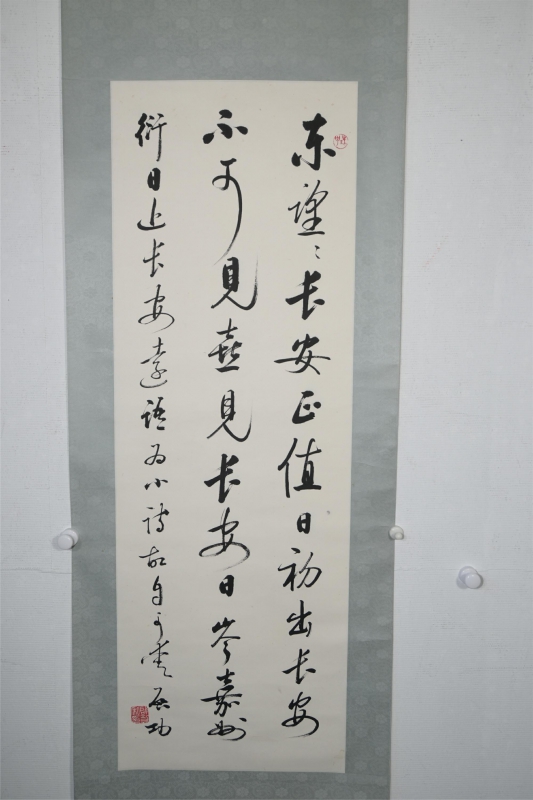 东望望长安正值日初出长安
不可見喜見长安日岑嘉州
衍日近长安遠語为小詩故自可愛启功